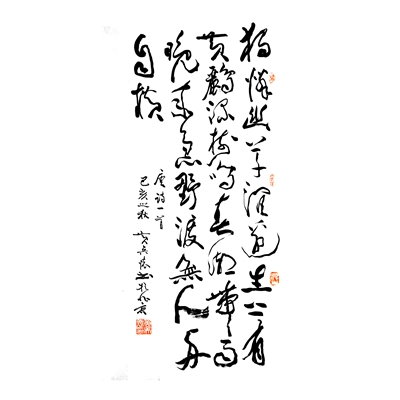 獨憐幽草澗邊生上有
黄鸝深樹鳴春潮帶雨
晚來急野渡無人舟
自橫
唐詩一首
己亥之秋黄書於